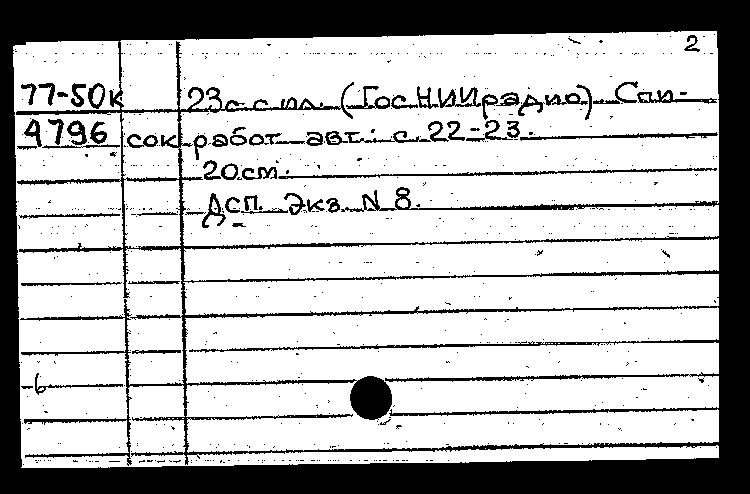 2
77-50к 23 с. с ил. (ГосНИИрадио). Спи-
4796 сок работ авт.: с. 22-23.
20 см.
Дсп. Экз. N 8.
6